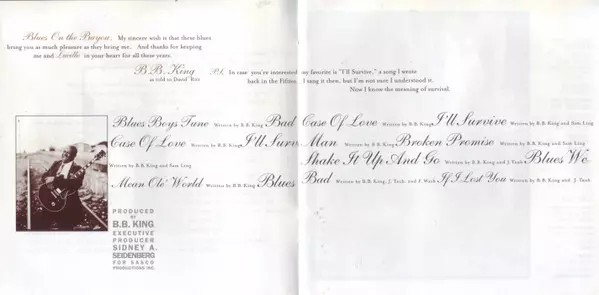 Blues On the Bayou. My sincere wish is that these blues
bring you as much pleasure as they bring me. And thanks for keeping
me and Lucille in your heart for all these years.
B.B. King
as told to David Ritz
P.S. In case you're interested my favorite is "I'll Survive," a song I wrote
back in the Fifties. I sang it then, but I'm not sure I understood it.
Now I know the meaning of survival.
Blues Boys Tune Written by B.B. King Bad Case Of Love Written by B.B. King I'll Survive Written by B.B. King and Sam Ling
Case Of Love I'll Surv Man Written by B.B. King Broken Promise Written by B.B. King and Sam Ling
Written by B.B. King and Sam Ling Shake It Up And Go Written by B.B. King and J. Taub Blues We
Mean Ole' World Written by B.B. King Blues Bad Written by B.B. King, J. Taub, and F. Wash If I Lost You Written by B.B. King and J. Taub
PRODUCED
BY
B.B. KING
EXECUTIVE
PRODUCER
SIDNEY A.
SEIDENBERG
FOR SASCO
PRODUCTIONS INC.